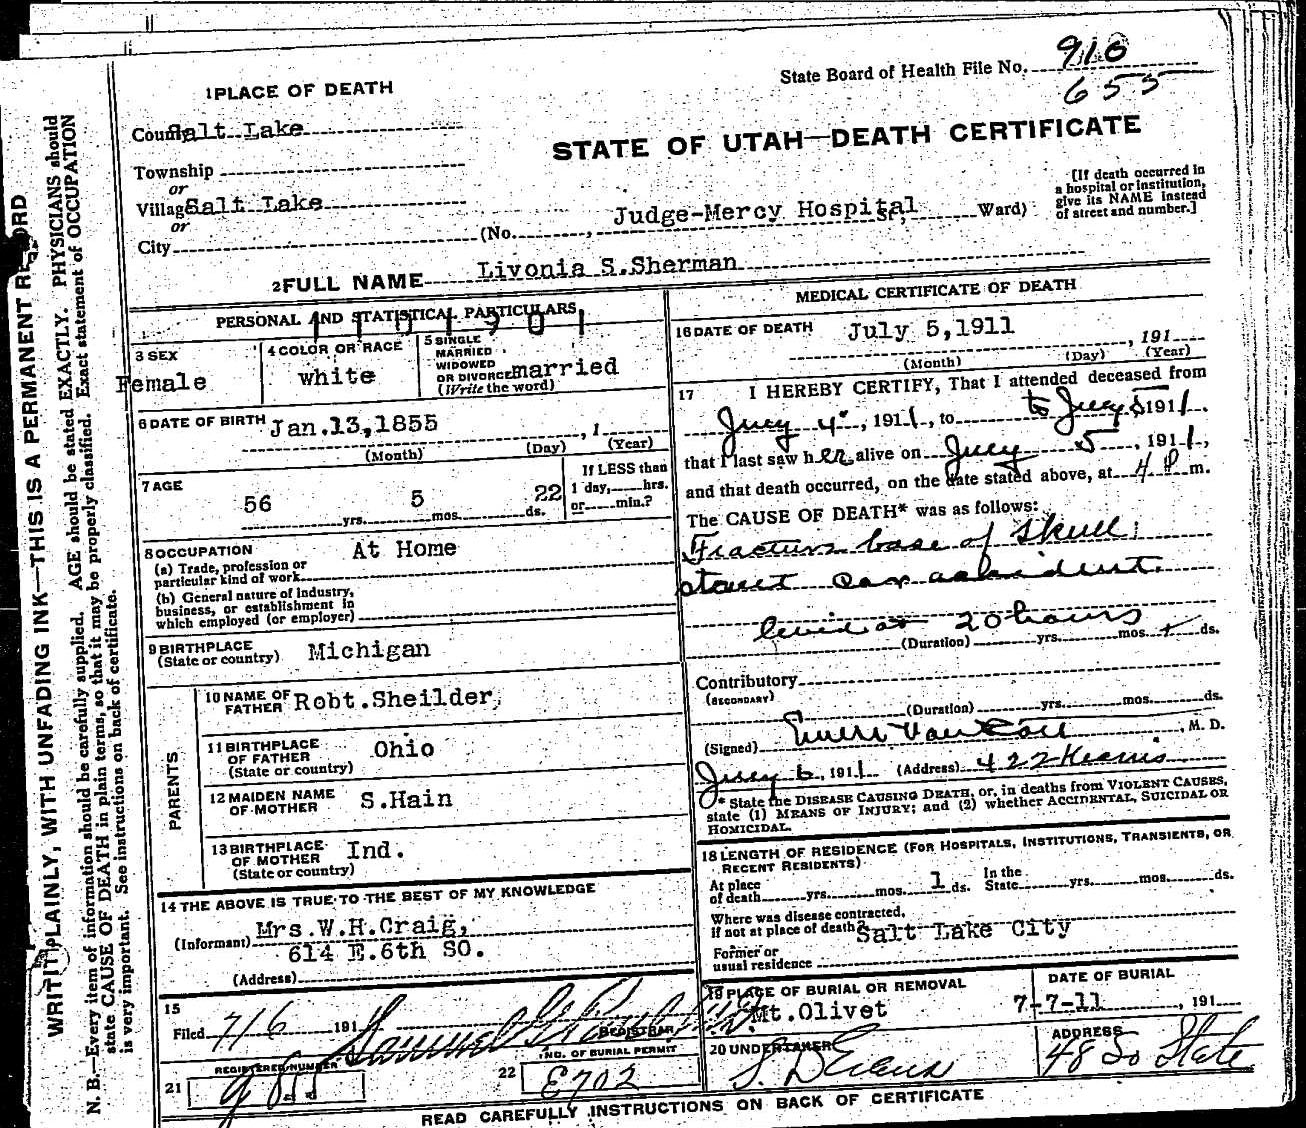 State Board of Health File No. 910
655
1 PLACE OF DEATH
County Salt Lake
STATE OF UTAH—DEATH CERTIFICATE
Township
or
Village Salt Lake
or
City (No. , Judge-Mercy Hospital St., Ward)
[If death occurred in
a hospital or institution,
give its NAME instead
of street and number.]
2 FULL NAME Livonia S.Sherman
PERSONAL AND STATISTICAL PARTICULARS
1101901
3 SEX
Female
4 COLOR OR RACE
white
5 SINGLE
MARRIED
WIDOWED
OR DIVORCED married
(Write the word)
6 DATE OF BIRTH Jan.13,1855 , 1
(Month) (Day) (Year)
7 AGE
56 yrs. 5 mos. 22 ds.
If LESS than
1 day, hrs.
or min.?
8 OCCUPATION At Home
(a) Trade, profession or
particular kind of work
(b) General nature of industry,
business, or establishment in
which employed (or employer)
9 BIRTHPLACE
(State or country) Michigan
PARENTS
10 NAME OF
FATHER Robt.Sheilder,
11 BIRTHPLACE
OF FATHER
(State or country) Ohio
12 MAIDEN NAME
OF MOTHER S.Hain
13 BIRTHPLACE
OF MOTHER
(State or country) Ind.
14 THE ABOVE IS TRUE TO THE BEST OF MY KNOWLEDGE
(Informant) Mrs.W.H.Craig,
614 E.6th SO.
(Address)
15
Filed 7/6 191
REGISTRAR
REGISTERED NUMBER
21
22 NO. OF BURIAL PERMIT
E702
MEDICAL CERTIFICATE OF DEATH
16 DATE OF DEATH July 5,1911 , 191
(Month) (Day) (Year)
17 I HEREBY CERTIFY, That I attended deceased from
July 4, 1911, to to July 5 1911.
that I last saw her alive on July 5, 1911,
and that death occurred, on the date stated above, at 4 P m.
The CAUSE OF DEATH* was as follows:
Fracture base of skull
street car accident.
lived 20 hours
(Duration) yrs. mos. ds.
Contributory
(SECONDARY)
(Duration) yrs. mos. ds.
(Signed) , M. D.
July 6, 1911 (Address) 422 Kearns
* State the DISEASE CAUSING DEATH, or, in deaths from VIOLENT CAUSES,
state (1) MEANS OF INJURY; and (2) whether ACCIDENTAL, SUICIDAL OR
HOMICIDAL.
18 LENGTH OF RESIDENCE (FOR HOSPITALS, INSTITUTIONS, TRANSIENTS, OR
RECENT RESIDENTS)
At place
of death yrs. mos. 1 ds.
In the
State yrs. mos. ds.
Where was disease contracted,
if not at place of death? Salt Lake City
Former or
usual residence
19 PLACE OF BURIAL OR REMOVAL
Mt.Olivet
DATE OF BURIAL
7-7-11 , 191
20 UNDERTAKER
S. D Evans
ADDRESS
48 So State
READ CAREFULLY INSTRUCTIONS ON BACK OF CERTIFICATE
WRITE PLAINLY, WITH UNFADING INK—THIS IS A PERMANENT RECORD
N. B.—Every item of information should be carefully supplied. AGE should be stated EXACTLY. PHYSICIANS should
state CAUSE OF DEATH in plain terms, so that it may be properly classified. Exact statement of OCCUPATION
is very important. See instructions on back of certificate.